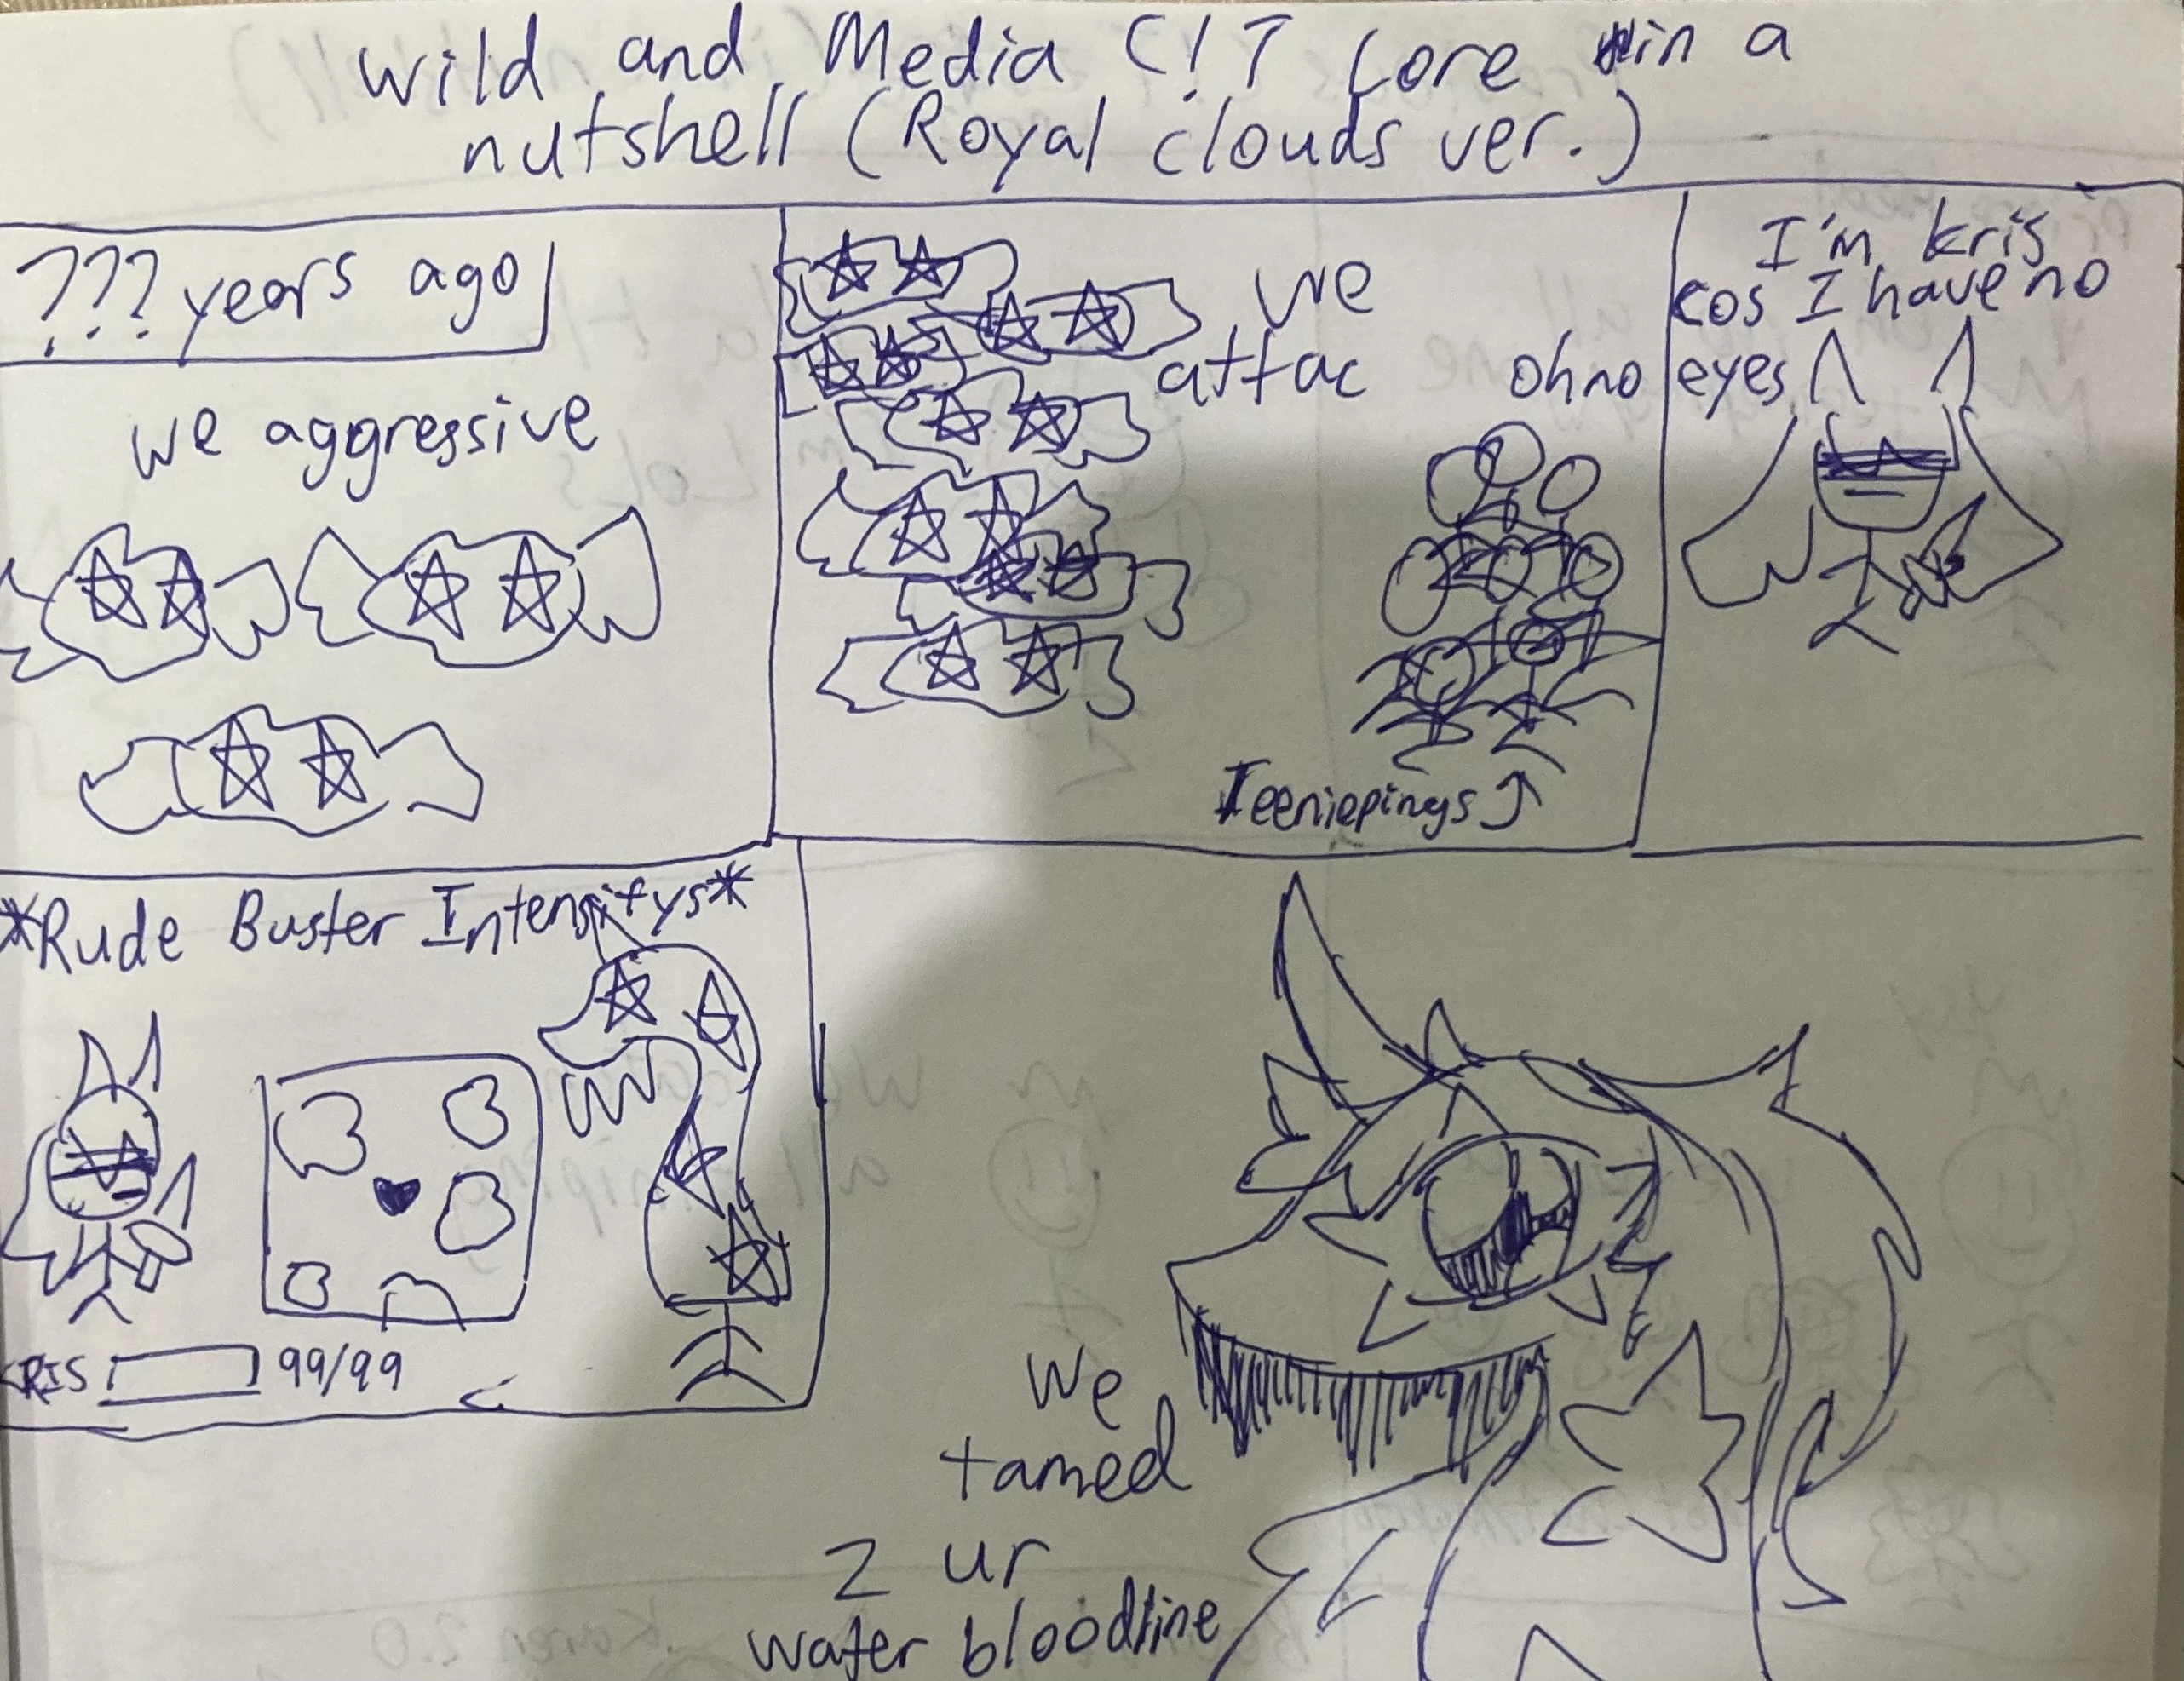 wild and Media C!T Lore in a
nutshell (Royal clouds ver.)
??? years ago
we aggressive
we
attac
oh no
Teeniepings
I'm kris
cos I have no
eyes
*Rude Buster Intensitys*
KRIS 99/99
We
tamed
2 ur
water bloodline